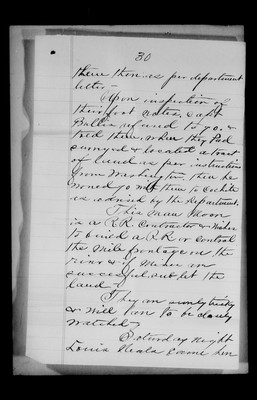 30
there then as per department
letter —
Upon inspection of
their foot notes, Capt
Bullis refused to go, &
told them, when they had
surveyed & located a tract
of land as per instructions
from Washington then he
would go with them to
as advised by the Department.
This man Moon
is a R.R. Contractor & wishes
to build a R.R. or Control
the Mile frontage on the
river & if
successful sublet the
land —
They are
& will have to be
watched —
Saturday night
Louis came